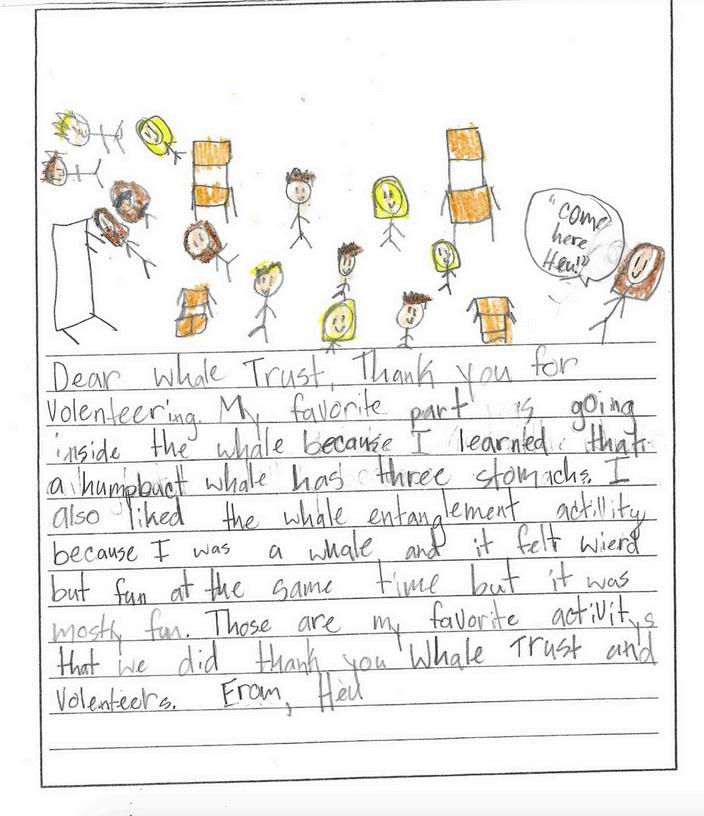 "come
here
Heu!"
Dear Whale Trust, Thank you for
Volenteering. My favorite part is going
inside the whale because I learned that
a humpbact whale has three stomachs. I
also liked the whale entanglement actility
because I was a whale and it felt wierd
but fun at the same time but it was
mostly fun. Those are my favorite activitys
that we did thank you Whale Trust and
Volenteers. From, Heu